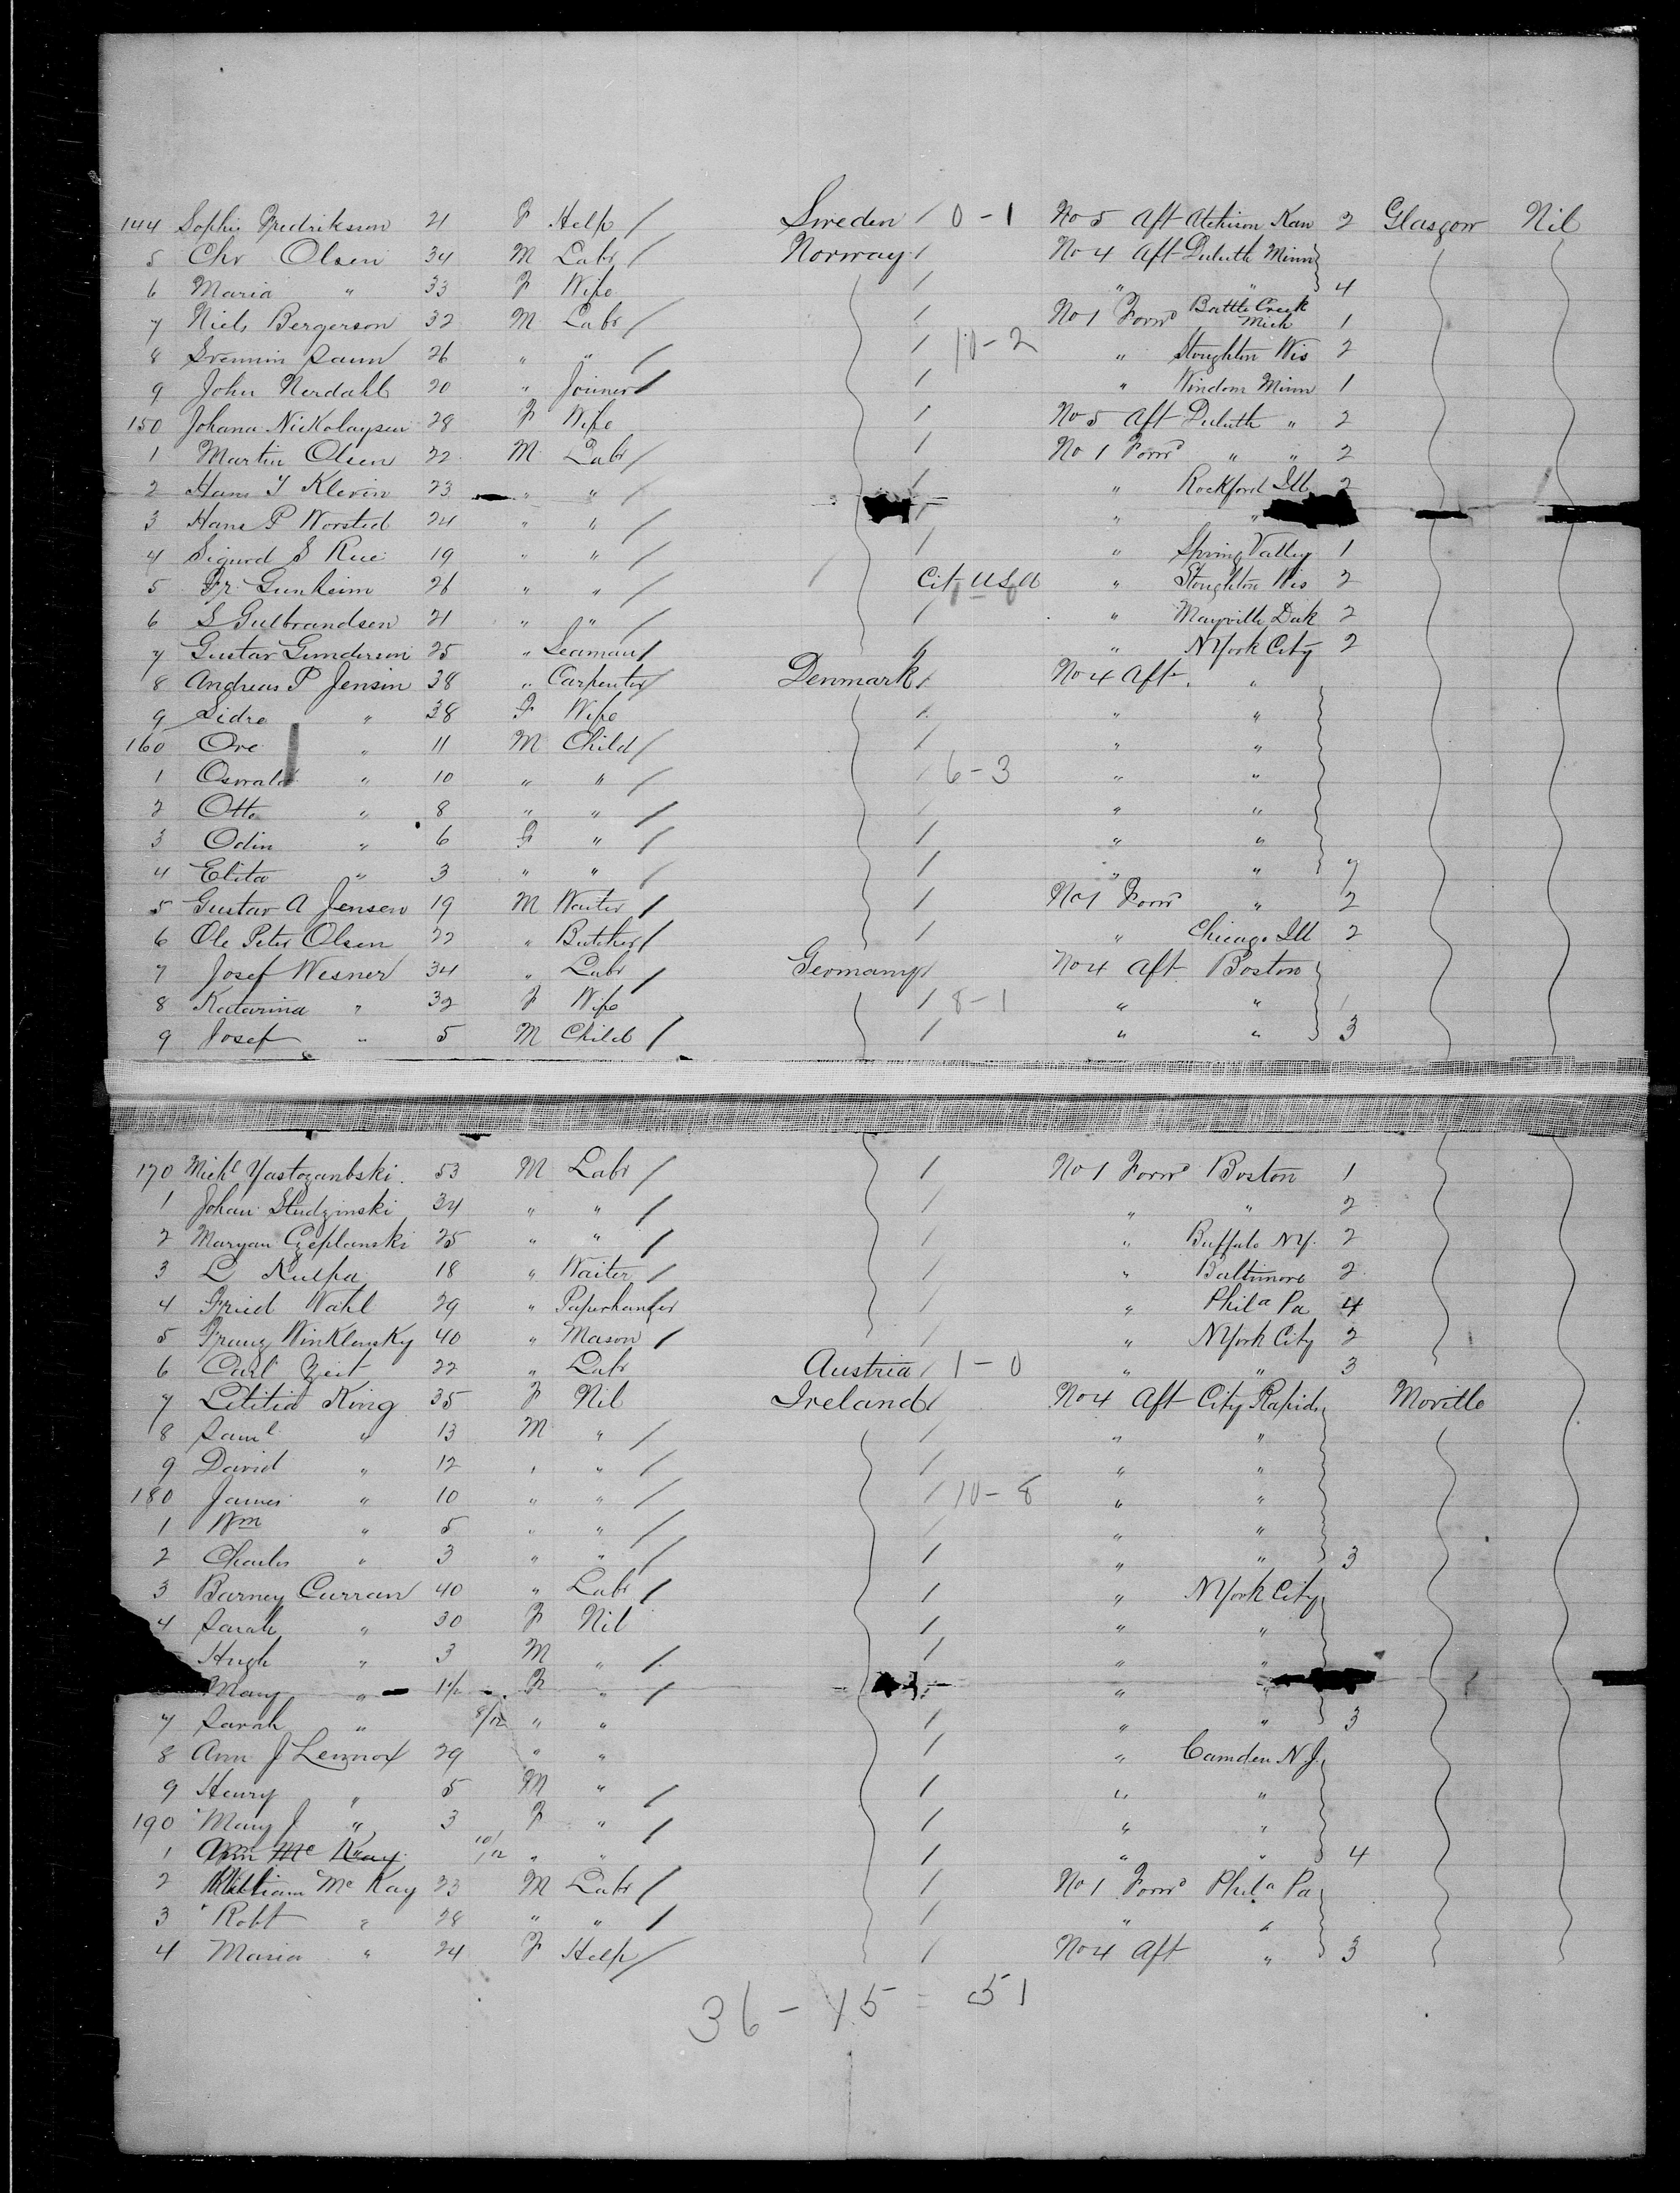 144 Sophie Fredrikson 21 F Help / Sweden / 0 - 1 No 5 Aft Atchison Kan 2 Glasgow Nil
5 Chr Olsen 34 M Labr / Norway / No 4 Aft Duluth Minn
6 Maria " 33 F Wife / " " 4
7 Niels Bergerson 32 M Labr / / No 1 Forwd Battle Creek Mich 1
8 26 " " / / 10 - 2 " Stoughton Wis 2
9 John Nerdahl 20 " Joiner / / " Windom Minn 1
150 Johana Nickolaysen 28 F Wife / No 5 Aft Duluth " 2
1 Martin Olsen 22 M Labr / / No 1 Forwd " " 2
2 Hans T Klevin 23 " " / / " Rockford Ill 2
3 Hans P Worsted 24 " " / / " "
4 Sigurd S Rue 19 " " / / " Spring Valley 1
5 Fr Gunheim 26 " " / / Cit USA " Stoughton Wis 2
6 S Gulbrandsen 21 " " / / " Mayville Dak 2
7 Gustav Gunderson 25 " Seaman / / " NYork City 2
8 Andreas P Jensen 38 " Carpenter / Denmark / No 4 Aft "
9 Sidre " 38 F Wife / " "
160 Ove " 11 M Child / / " "
1 Oswald " 10 " " / / 6 - 3 " "
2 Otto " 8 " " / / " "
3 Odin " 6 F " / / " "
4 Elita " 3 " " / / " " 7
5 Gustav A Jensen 19 M Waiter / / No 1 Forwd " 2
6 Ole Peter Olsen 22 " Butcher / / " Chicago Ill 2
7 Josef Wesner 34 " Labr / Germany / No 4 Aft Boston
8 Katarina " 32 F Wife / 8 - 1 " "
9 Josef " 5 M Child / / " " 3
170 Michl Yastozanbski 53 M Labr / / No 1 Forwd Boston 1
1 Johan Studzinski 34 " " / / " " 2
2 Maryan Czeplanski 25 " " / / " Buffalo NY. 2
3 L Kulpa 18 " Waiter / / " Baltimore 2
4 Fried Wahl 29 " Paperhanger / " Phila Pa 4
5 Franz Winklensky 40 " Mason / / " NYork City 2
6 Carl Zeit 22 " Labr Austria / 1 - 0 " " 3
7 Letitia King 35 F Nil Ireland / No 4 Aft City Rapids Moville
8 Saml " 13 M " / / " "
9 David " 12 " " / / " "
180 James " 10 " " / / 10 - 8 " "
1 Wm " 5 " " / / " "
2 Charles " 3 " " / / " " 3
3 Barney Curran 40 " Labr / / " NYork City
4 Sarah " 30 F Nil / " "
Hugh " 3 M " / / " "
Mary " 1½ F " / " "
7 Sarah " 8/12 " " / " " 3
8 Ann J Lennox 29 " " / " Camden N.J.
9 Henry " 5 M " / / " "
190 Mary J " 3 F " / / " "
1 Ann Mc Kay 10/12 " " / " " 4
2 William Mc Kay 23 M Labr / / No 1 Forwd Phila Pa
3 Robt " 28 " " / / " "
4 Maria " 24 F Help / / No 4 Aft " 3
36 - 15 = 51